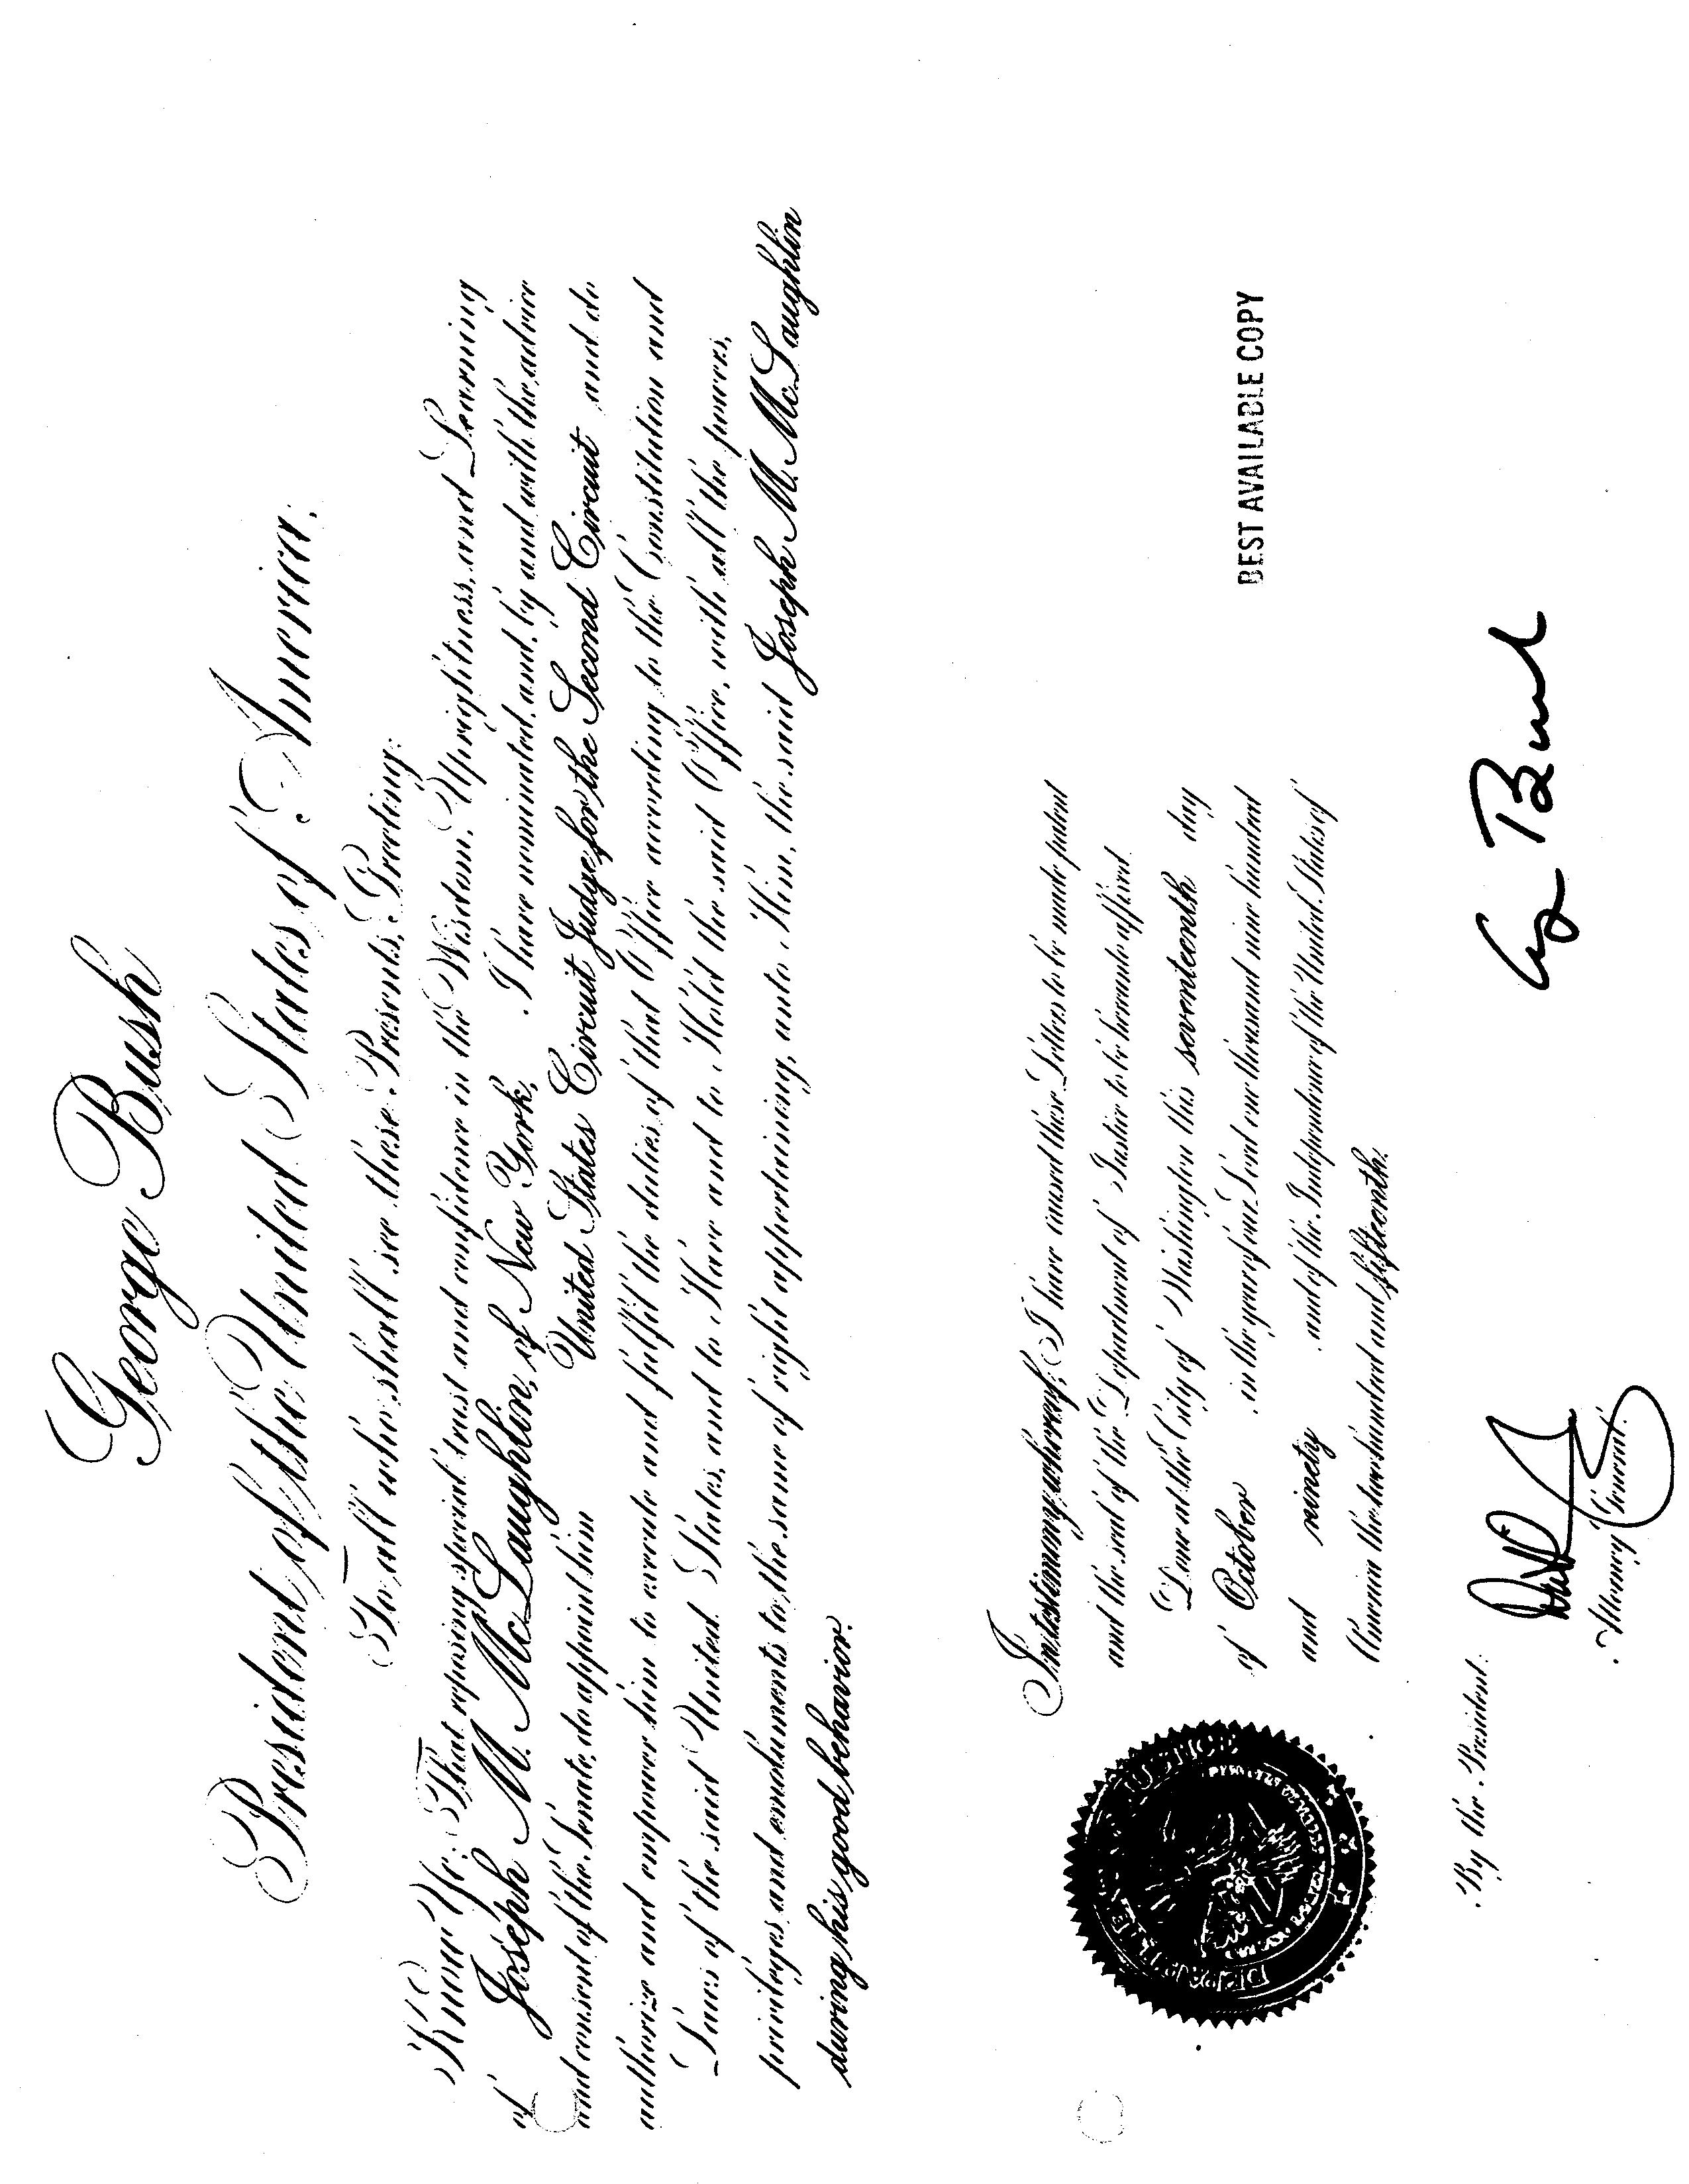 George Bush
President of the United States of America.
To all who shall see these Presents, Greeting:
Know Ye: That reposing special trust and confidence in the Wisdom, Uprightness, and Learning
of Joseph M. McLaughlin, of New York, I have nominated, and, by and with the advice
and consent of the Senate, do appoint him United States Circuit Judge for the Second Circuit and do
authorize and empower him to execute and fulfil the duties of that Office according to the Constitution and
Laws of the said United States, and to Have and to Hold the said Office, with all the powers,
privileges and emoluments to the same of right appertaining, unto Him, the said Joseph M. McLaughlin
during his good behavior.
In testimony whereof, I have caused these Letters to be made patent
and the seal of the Department of Justice to be hereunto affixed.
Done at the City of Washington this seventeenth day
of October in the year of our Lord one thousand nine hundred
and ninety and of the Independence of the United States of
America the two hundred and fifteenth.
BEST AVAILABLE COPY
G Bush
By the President:
Attorney General.